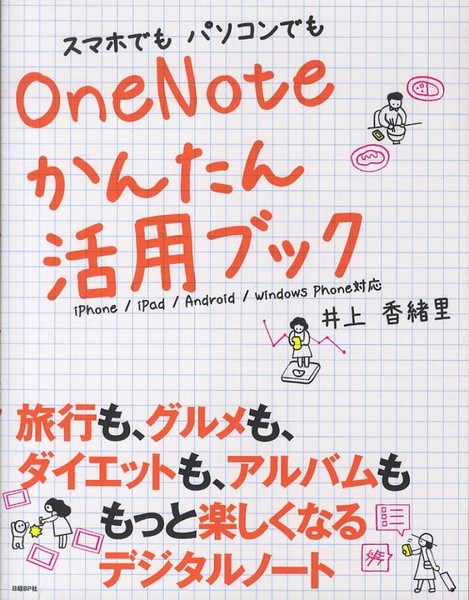 スマホでも パソコンでも
OneNote
かんたん
活用ブック
iPhone / iPad / Android / Windows Phone対応
井上 香緒里
旅行も、グルメも、
ダイエットも、アルバムも
もっと楽しくなる
デジタルノート
日経BP社